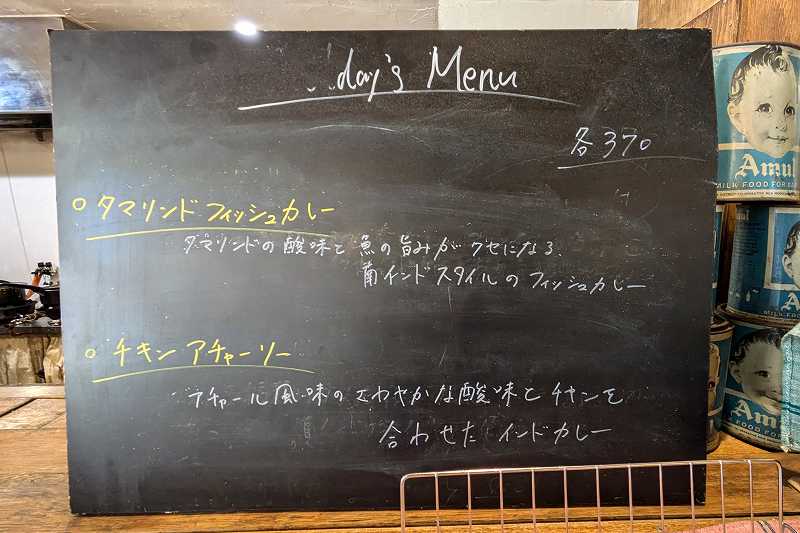 day's Menu
各370
○タマリンドフィッシュカレー
タマリンドの酸味と魚の旨みがクセになる、
南インドスタイルのフィッシュカレー
○チキンアチャーリー
アチャール風味のさわやかな酸味とチキンを
合わせたインドカレー
Amul
MILK FOOD FOR
Amul
Am
MILK FOOD FOR